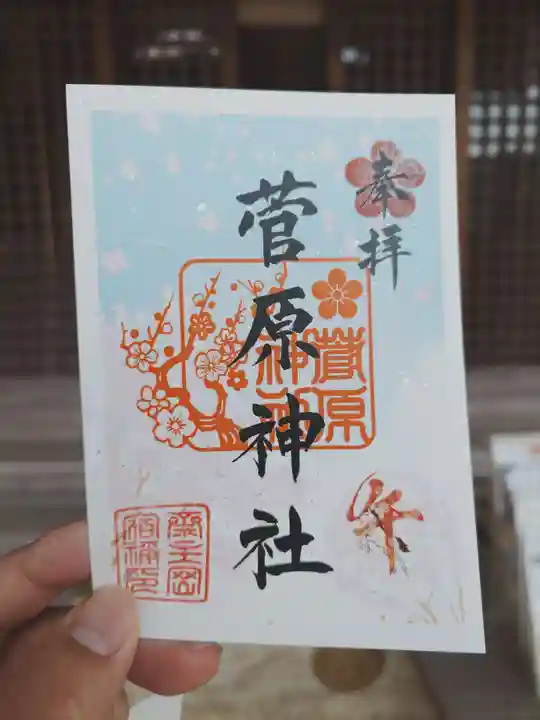 奉拝
菅原神社
菅原
神社